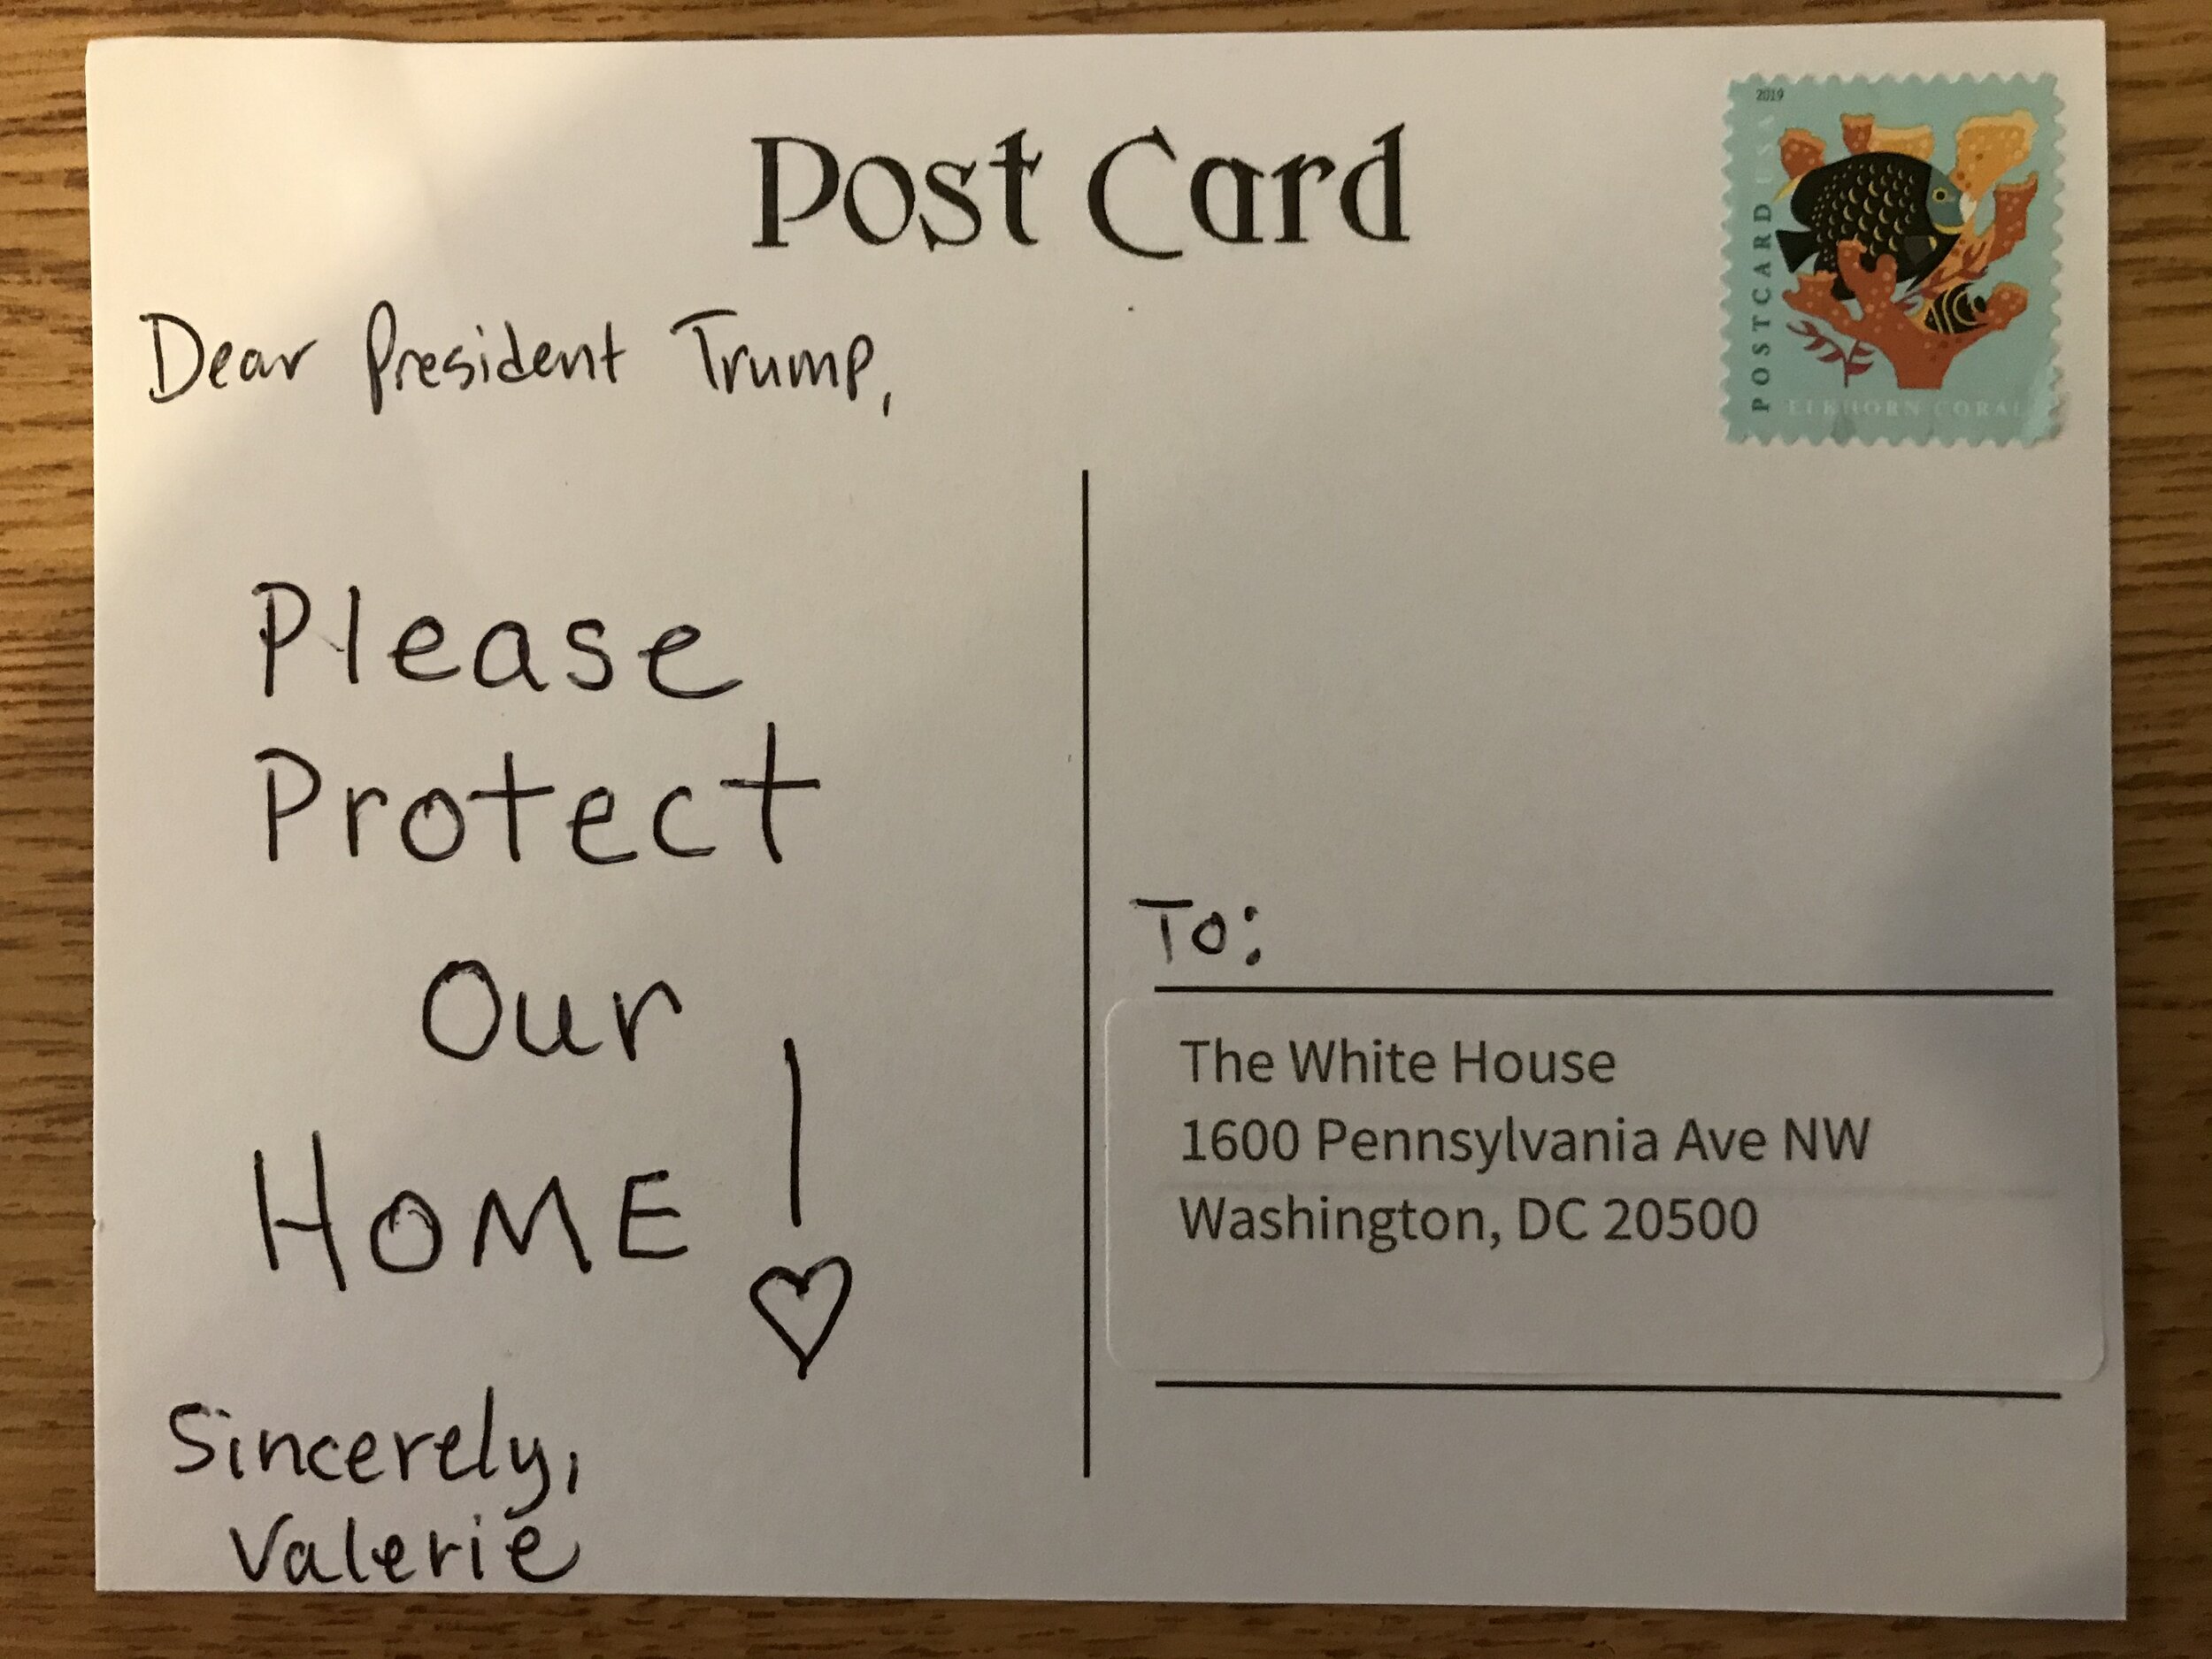 Post Card
2019
POSTCARD USA
ELKHORN CORAL
Dear President Trump,
Please
Protect
Our
HOME!
Sincerely,
Valerie
To:
The White House
1600 Pennsylvania Ave NW
Washington, DC 20500